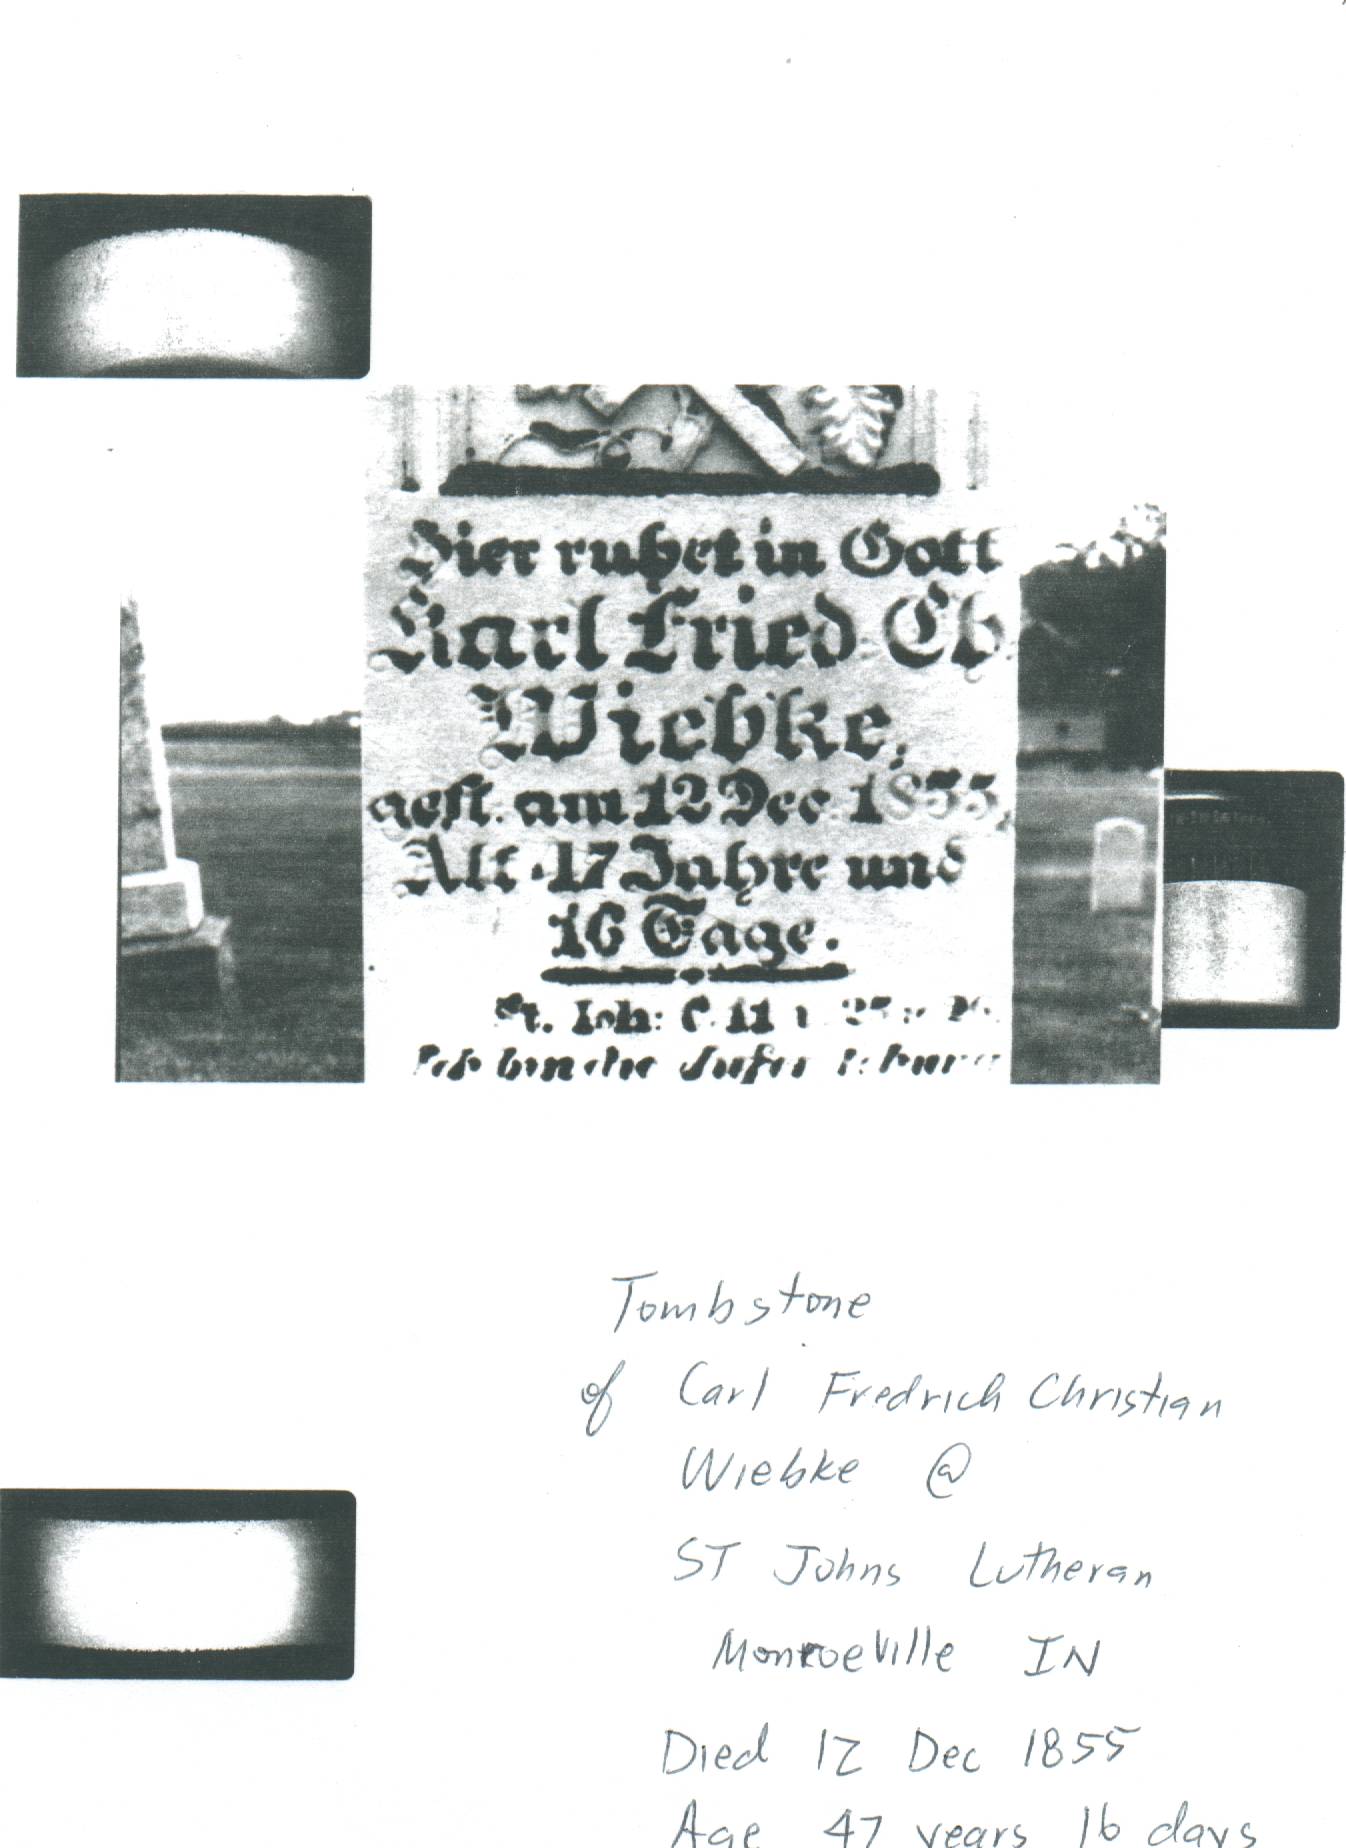 Hier ruhet in Gott
Karl Fried Ch.
Wiebke,
gest. am 12 Dec. 1855,
Alt 47 Jahre und
16 Tage.
St. Joh: C. 11 v. 25 u. 26.
Ich bin die
Tombstone
of Carl Fredrich Christian
Wiebke @
ST Johns Lutheran
Monroeville IN
Died 12 Dec 1855
Age 47 years 16 days